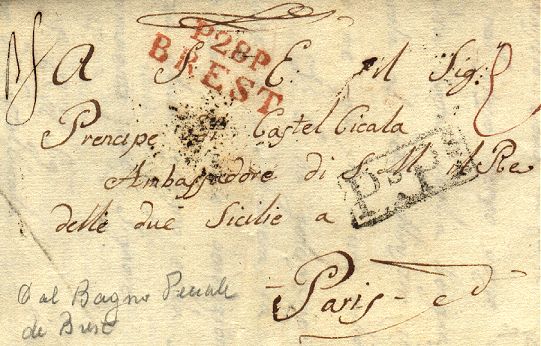 P28P
BREST
A S. E. il Sig.
Prencipe di Castel Cicala
Ambassadore di S. M. il Re
delle due Sicilie a
P.P.
Paris
Dal Bagno Penale
di Brest